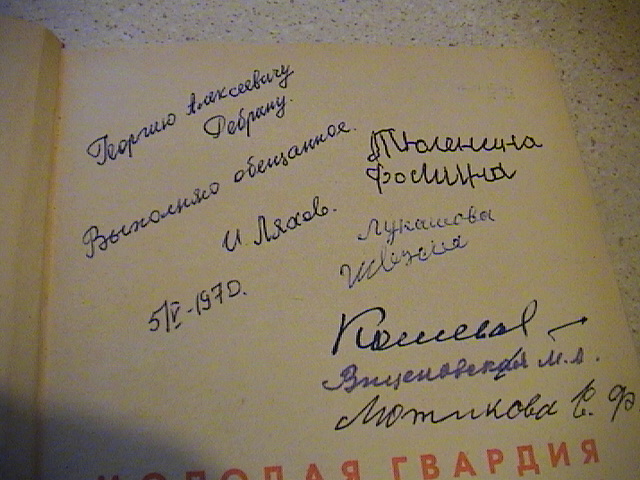 Георгию Алексеевичу
Ребрину.
Выполняю обещанное.
И Ляхов.
5/V-1970.
Тюленина
Фомина
Лукашова
Кошевая
Виценовская М.А.
Мотикова Е. Ф
МОЛОДАЯ ГВАРДИЯ